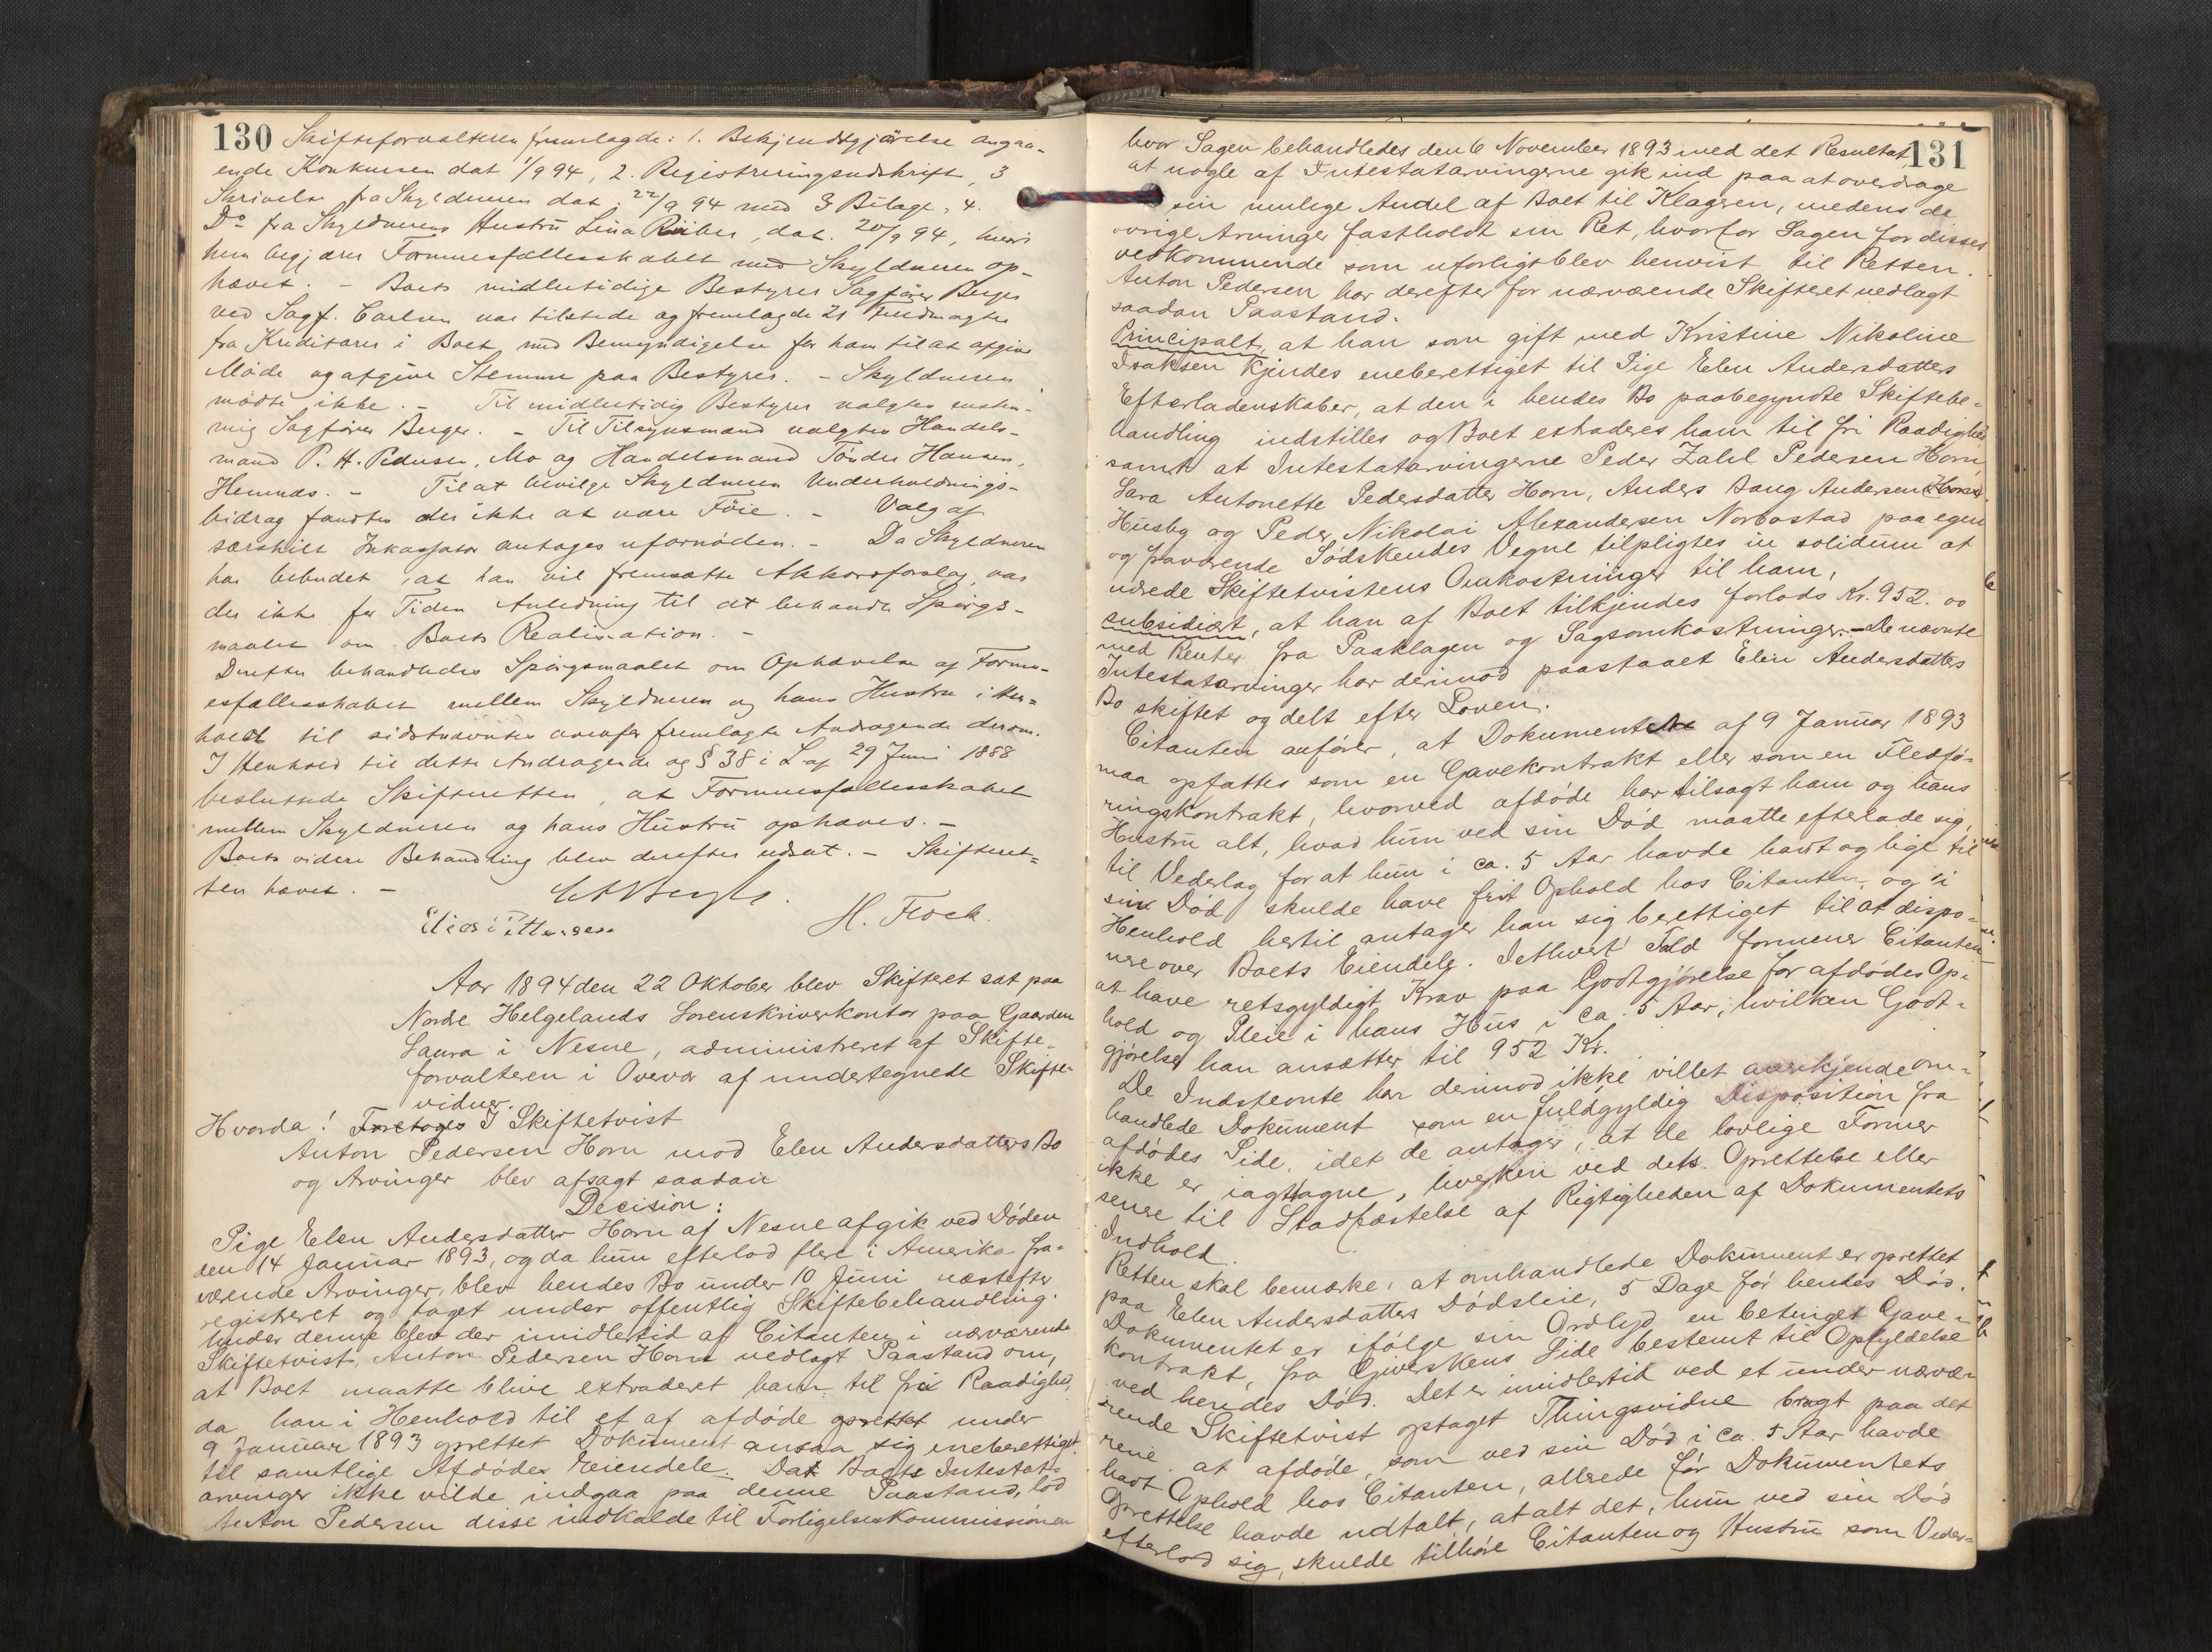 130
Skifteforvalteren fremlagde: 1. Bekjendtgjørelse angaa-
ende Konkursen dat 1/9 94, 2. Registreringsudskrift, 3
Skrivelse fra Skyldneren dat. 22/9 94 med 3 Bilage, 4.
Do fra Skyldnerens Hustru Lina dat. 20/9 94, hvori
hun begjærer Formuesfællesskabet med Skyldneren op-
hævet. - Boets midlertidige Bestyrer Sagfører Berger
ved Sagf. Carlsen var tilstede og fremlagde 21 Fuldmagter
fra Kreditorer i Boet med Bemyndigelse for ham til at afgive
Møde og afgive Stemme paa Bestyrer. - Skyldneren
mødte ikke. - Til midlertidig Bestyrer valgtes enstem-
mig Sagfører Berger. - Til Tilsynsmænd valgtes Handels-
mand P. H. Pedersen, Mo og Handelsmand Tønder Hansen,
Hemnæs. - Til at bevilge Skyldneren Underholdnings-
bidrag fandtes der ikke at være Føie. - Valg af
særskilt Inkassator antages ufornøden. - Da Skyldneren
har bebudet, at han vil fremsætte Akkordforslag, var
der ikke for Tiden Anledning til at behandle Spørgs-
maalet om Boets Realisation. -
Derefter behandledes Spørgsmaalet om Ophævelse af Formu-
esfællesskabet mellem Skyldneren og hans Hustru i Hen=
hold til sidstnævntes ovenfor fremlagte Andragende derom.
I Henhold til dette Andragende og § 38 i L af 29 Juni 1888
besluttede Skifteretten, at Formuesfællesskabet
mellem Skyldneren og hans Hustru ophæves. -
Boets videre Behandling blev derefter udsat. - Skifteret=
ten hævet. -
H. Flock.
Aar 1894 den 22 Oktober blev Skifteret sat paa
Nordre Helgelands Sorenskriverkontor paa Gaarden
Laura i Nesne, administreret af Skifte-
forvalteren i Overvær af undertegnede Skifte-
vidner.
Hvorda! Foretoges I Skiftetvist
Anton Pedersen Horn mod Elen Andersdatters Bo
og Arvinger blev afsagt saadan
Decision:
Pige Elen Andersdatter Horn af Nesne afgik ved Døden
den 14 Januar 1893, og da hun efterlod flere i Amerika fra-
værende Arvinger, blev hendes Bo under 10 Juni næstefter
registreret og taget under offentlig Skiftebehandling.
Under denne blev der imidlertid af Citanten i nærværende
Skiftetvist, Anton Pedersen Horn nedlagt Paastand om,
at Boet maatte blive extraderet ham til fri Raadighed,
da han i Henhold til et af afdøde oprettet under
9 Januar 1893 oprettet Dokument ansaa sig eneberettiget
til samtlige Afdødes Eiendele. Da Boets Intestat-
arvinger ikke vilde indgaa paa denne Paastand, lod
Anton Pedersen disse indkalde til Forligelseskommissionen
131
hvor Sagen behandledes den 6 November 1893 med det Resultat,
at nogle af Intestatarvingerne gik ind paa at overdrage
sin mulige Andel af Boet til Klageren, medens de
øvrige Arvinger fastholdt sin Ret, hvorfor Sagen for disses
vedkommende som uforligt blev henvist til Retten.
Anton Pedersen har derefter for nærværende Skifteret nedlagt
saadan Paastand.
Principalt, at han som gift med Kristine Nikoline
Isaksen kjendes eneberettiget til Pige Elen Andersdatters
Efterladenskaber, at den i hendes Bo paabegyndte Skiftebe-
handling indstilles og Boet extraderes ham til fri Raadighed
samt at Intestatarvingerne Peder Zahl Pedersen Horn,
Sara Antonette Pedersdatter Horn, Anders Bang Andersen Horn
Husby og Peder Nikolai Alexandersen Norbostad paa egen
og fraværende Sødskendes Vegne tilpligtes in solidum at
udrede Skiftetvistens Omkostninger til ham,
subsidiært, at han af Boet tilkjendes forlods Kr. 952. 00
med Renter fra Paaklagen og Sagsomkostninger. - De nævnte
Intestatarvinger har derimod paastaaet Elen Andersdatters
Bo skiftet og delt efter Loven.
Citanten anfører, at Dokumentet af 9 Januar 1893
maa opfattes som en Gavekontrakt eller som en Fledfø-
ringskontrakt, hvorved afdøde har tilsagt ham og hans
Hustru alt, hvad hun ved sin Død maatte efterlade sig,
til Vederlag for at hun i ca. 5 Aar havde havt og lige til
sin Død skulde have frit Ophold hos Citanten, og i
Henhold hertil antager han sig berettiget til at dispo-
nere over Boets Eiendele. I ethvert Fald formener Citanten
at have retsgyldigt Krav paa Godtgjørelse for afdødes Op-
hold og Pleie i hans Hus i ca. 5 Aar, hvilken Godt-
gjørelse han ansætter til 952 Kr.
De Indstevnte har derimod ikke villet anerkjende om-
handlede Dokument som en fuldgyldig Disposition fra
afdødes Side, idet de antager, at de lovlige Former
ikke er iagttagne, hverken ved dets Oprettelse eller
senere til Stadfæstelse af Rigtigheden af Dokumentets
Indhold.
Retten skal bemærke: at omhandlede Dokument er oprettet
paa Elen Andersdatters Dødsleie, 5 Dage før hendes Død.
Dokumentet er ifølge sin Ordlyd en betinget Gave-
kontrakt, fra Giverskens Side bestemt til Opfyldelse
ved hendes Død. Det er imidlertid ved et under nærvæ-
rende Skiftetvist optaget Thingsvidne bragt paa det
rene at afdøde, som ved sin Død i ca. 5 Aar havde
havt Ophold hos Citanten, allerede før Dokumentets
Oprettelse havde udtalt, at alt det, hun ved sin Død
efterlod sig, skulde tilhøre Citanten og Hustru som Veder=